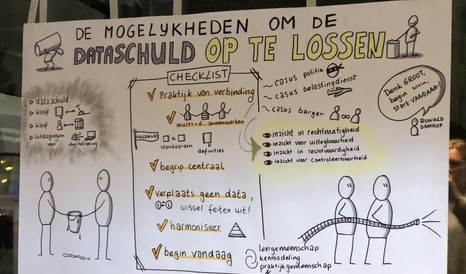 DE MOGELYKHEDEN OM DE
DATASCHULD OP TE LOSSEN
dataschuld
kloof
kloof
uitdagingen voor digitalisering
CHECKLIST
Praktijk van verbinding
multi-d. samenwerken
standaarden
definities
begrip centraal
verplaats geen data,
wissel feiten uit!
harmoniseer
begin vandaag
casus politie
casus belastingdienst
casus burger
inzicht in rechtmatigheid
inzicht voor uitlegbaarheid
inzicht in rechtvaardigheid
inzicht voor controleerbaarheid
Denk GROOT,
begin klein
start VANDAAG
RONALD
DAMHOF
leergemeenschap
kennisdeling
praktijkgemeenschap